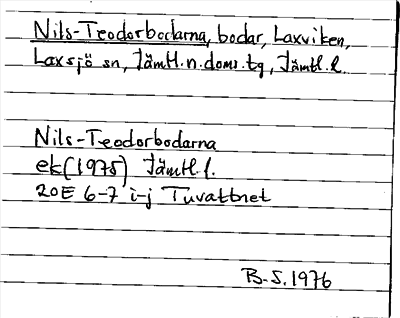 Nils-Teodorbodarna, bodar, Laxviken,
Laxsjö sn, Jämtl.n.doms.tg, Jämtl.l.
Nils-Teodorbodarna
ek(1975) Jämtl.l.
20E 6-7 i-j Tuvattnet
B.S.1976